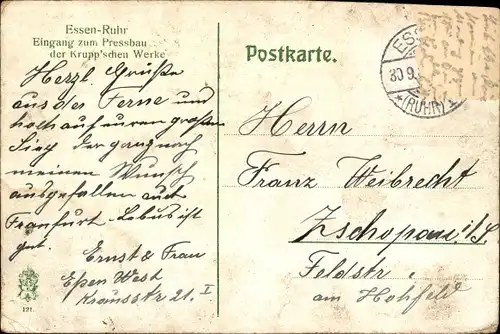 Essen-Ruhr
Eingang zum Pressbau
der Krupp'schen Werke
Postkarte.
ESS
30 9.
*(RUHR)
Herzl. Grüße
aus der Ferne und
hoch auf euren großen
Sieg der ganz nach
meinen Wunsch
ausgefallen auch
Frankfurt-Lebus ist
gut.
Ernst & Frau
Essen West
21. I
Herrn
Franz Weibrecht
Zschopau i/S.
Feldstr.
am Hohfeld
121.